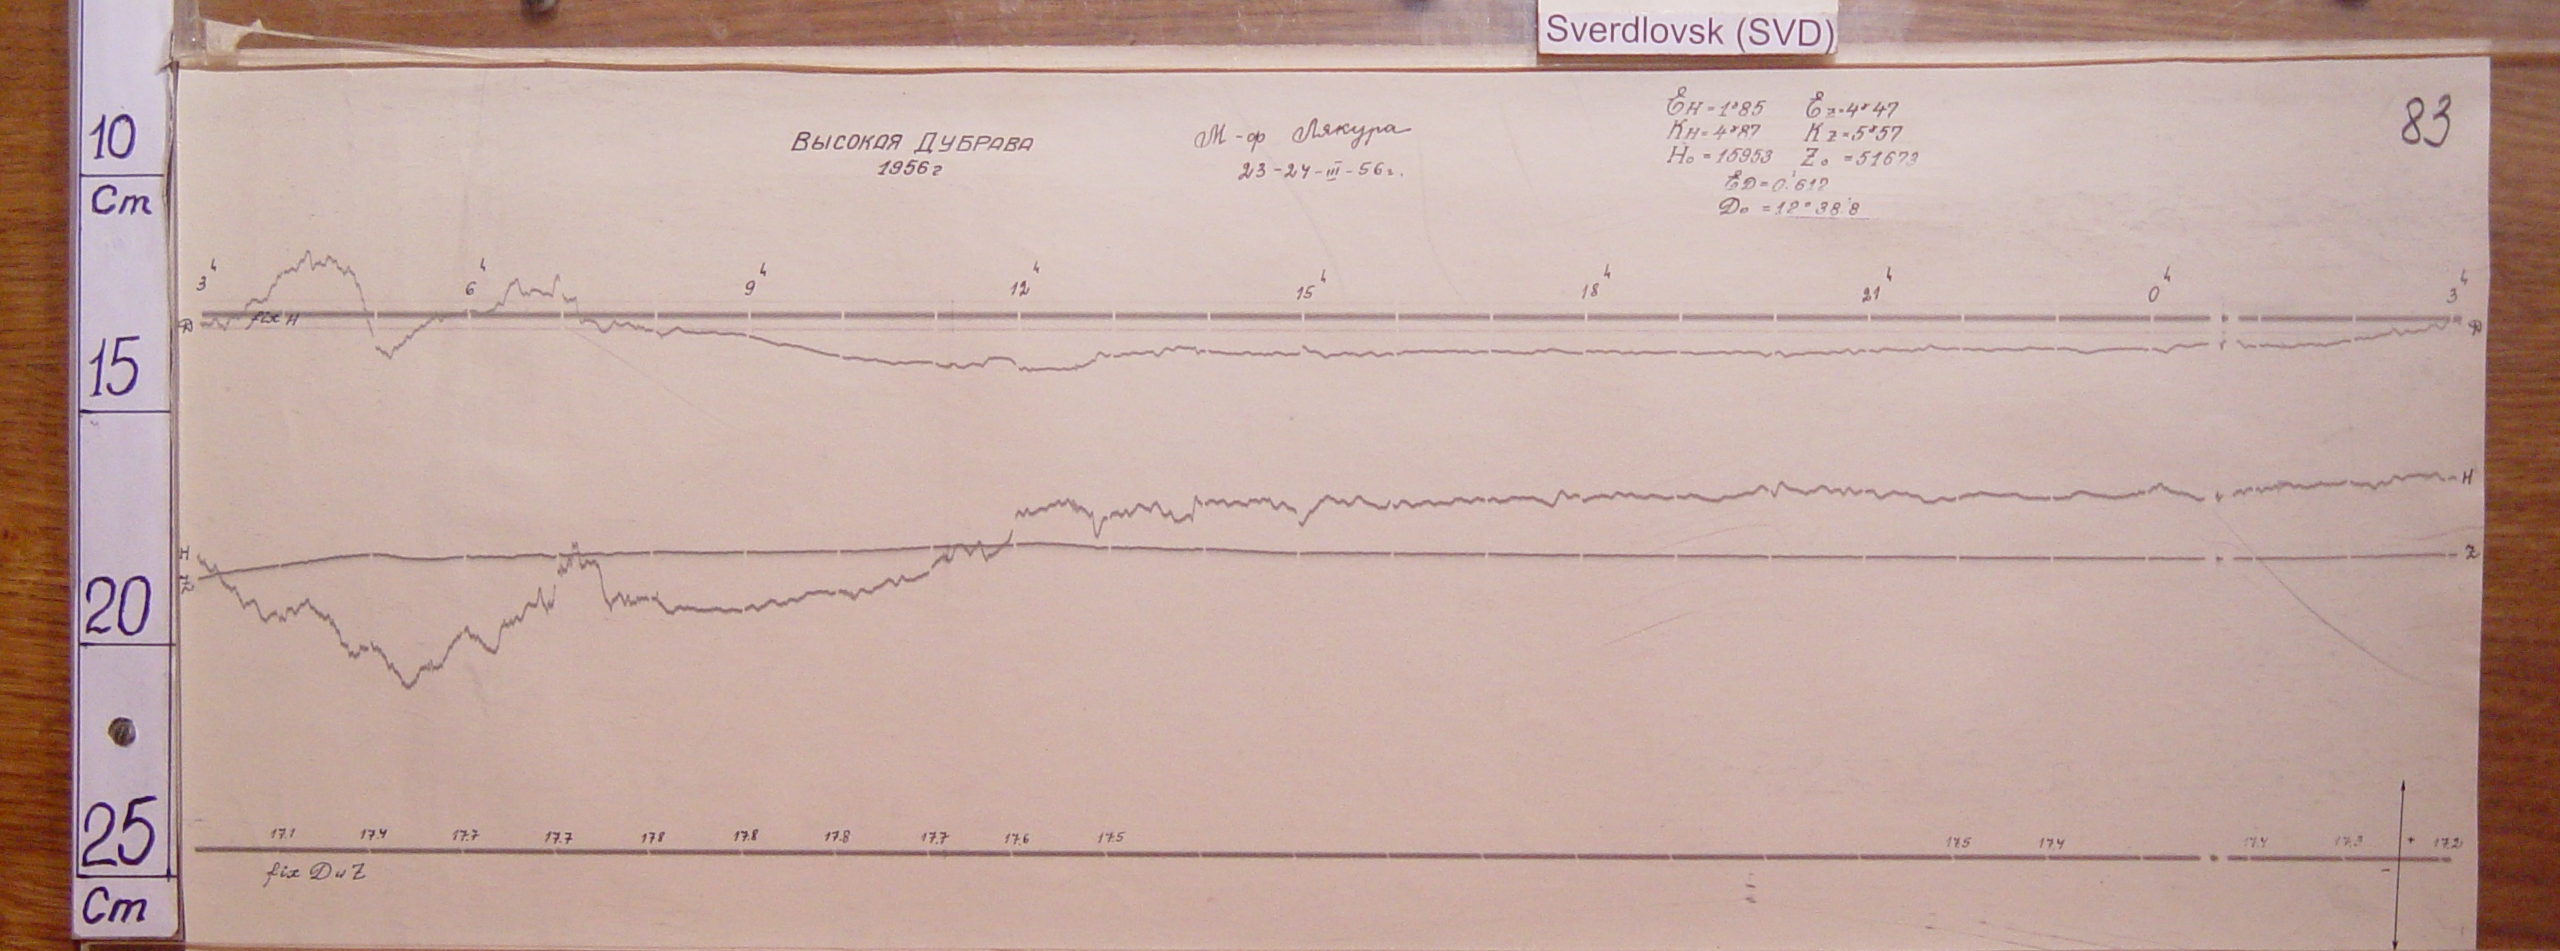 Sverdlovsk (SVD)
10
Cm
15
20
25
Cm
ВЫСОКАЯ ДУБРАВА
1956г
М-ф Лякура
23-24-III-56г.
Ɛн=1ˠ85 Ɛz=4ˠ47
Kн=4ˠ87 Kz=5ˠ57
H₀=15953 Z₀=51673
ƐD=0.'617
D₀=12°38.'8
83
3ч 6ч 9ч 12ч 15ч 18ч 21ч 0ч 3ч
D fix H D
H H
Z Z
17.1 17.4 17.7 17.7 17.8 17.8 17.8 17.7 17.6 17.5 17.5 17.4 17.4 17.3 + 17.2
fix D и Z -